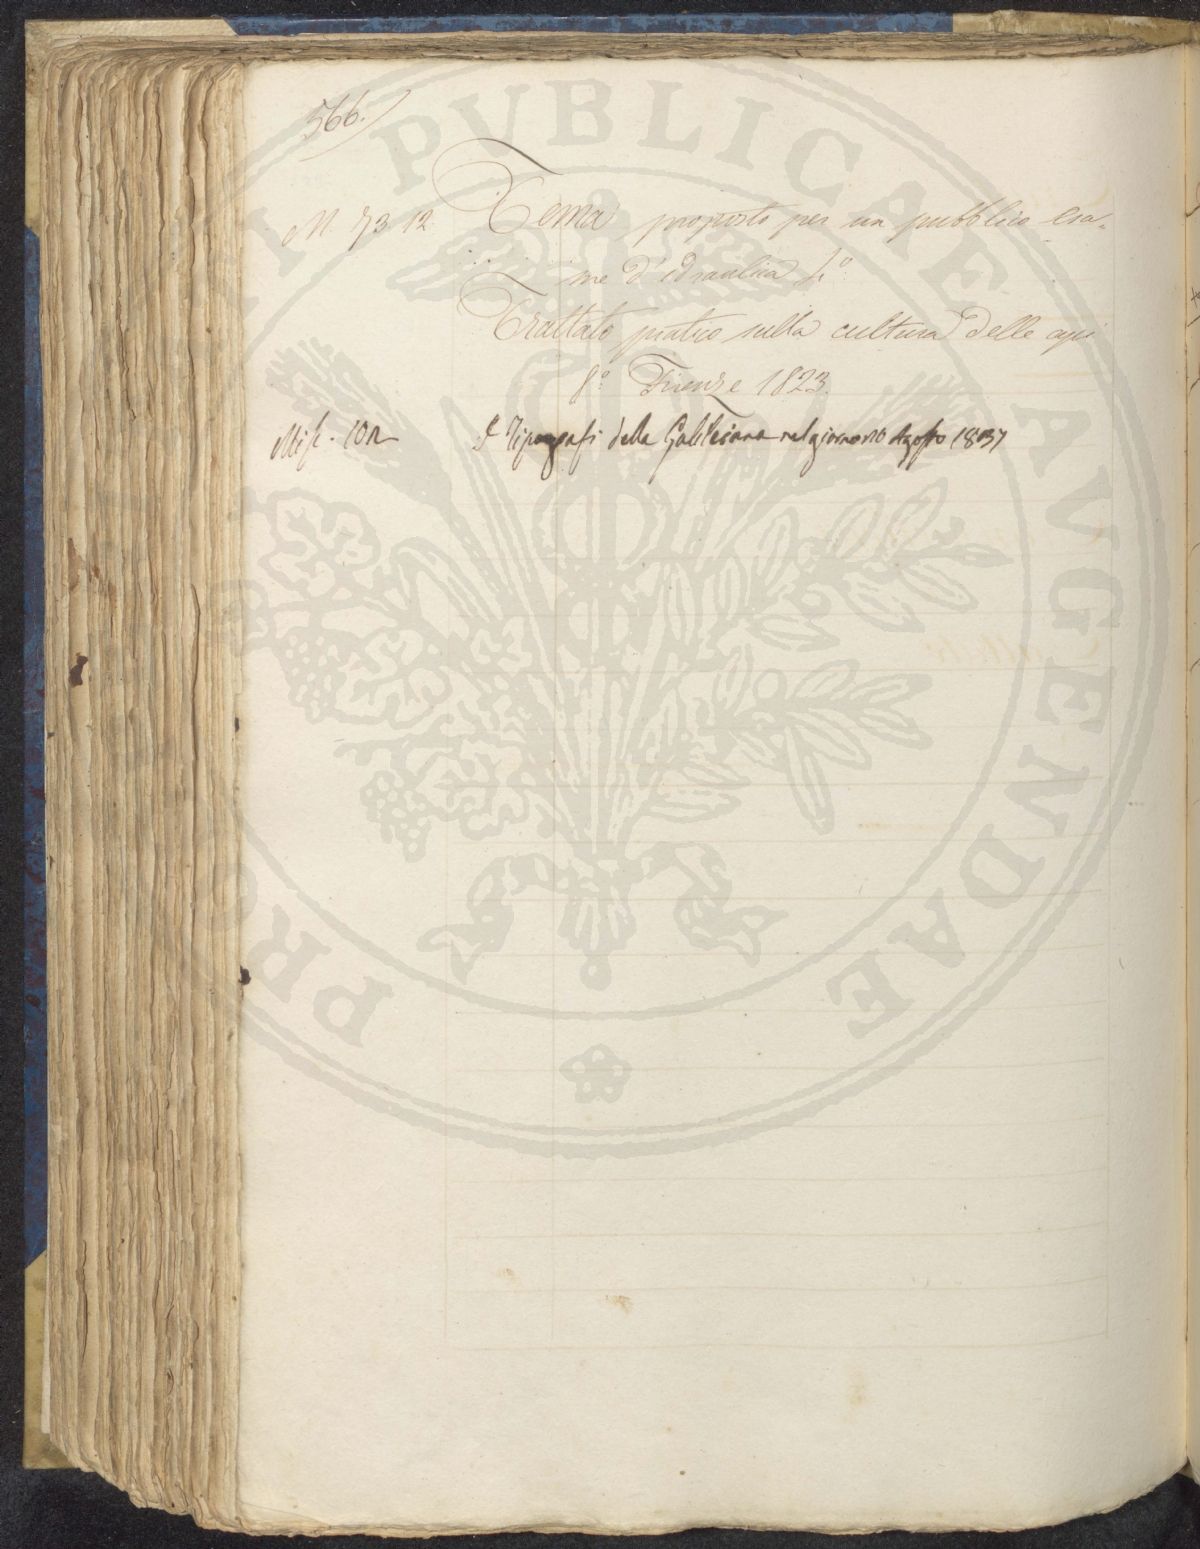 566.
N. 73 12 Tema proposto per un pubblico esa-
me d'idraulica f.o
Trattato pratico sulla cultura delle api
8.o Firenze 1823.
Misc. 102 I Tipografi della Galileiana nel giorno 10 Agosto 1837
PUBLICAE AUGENDAE PRO